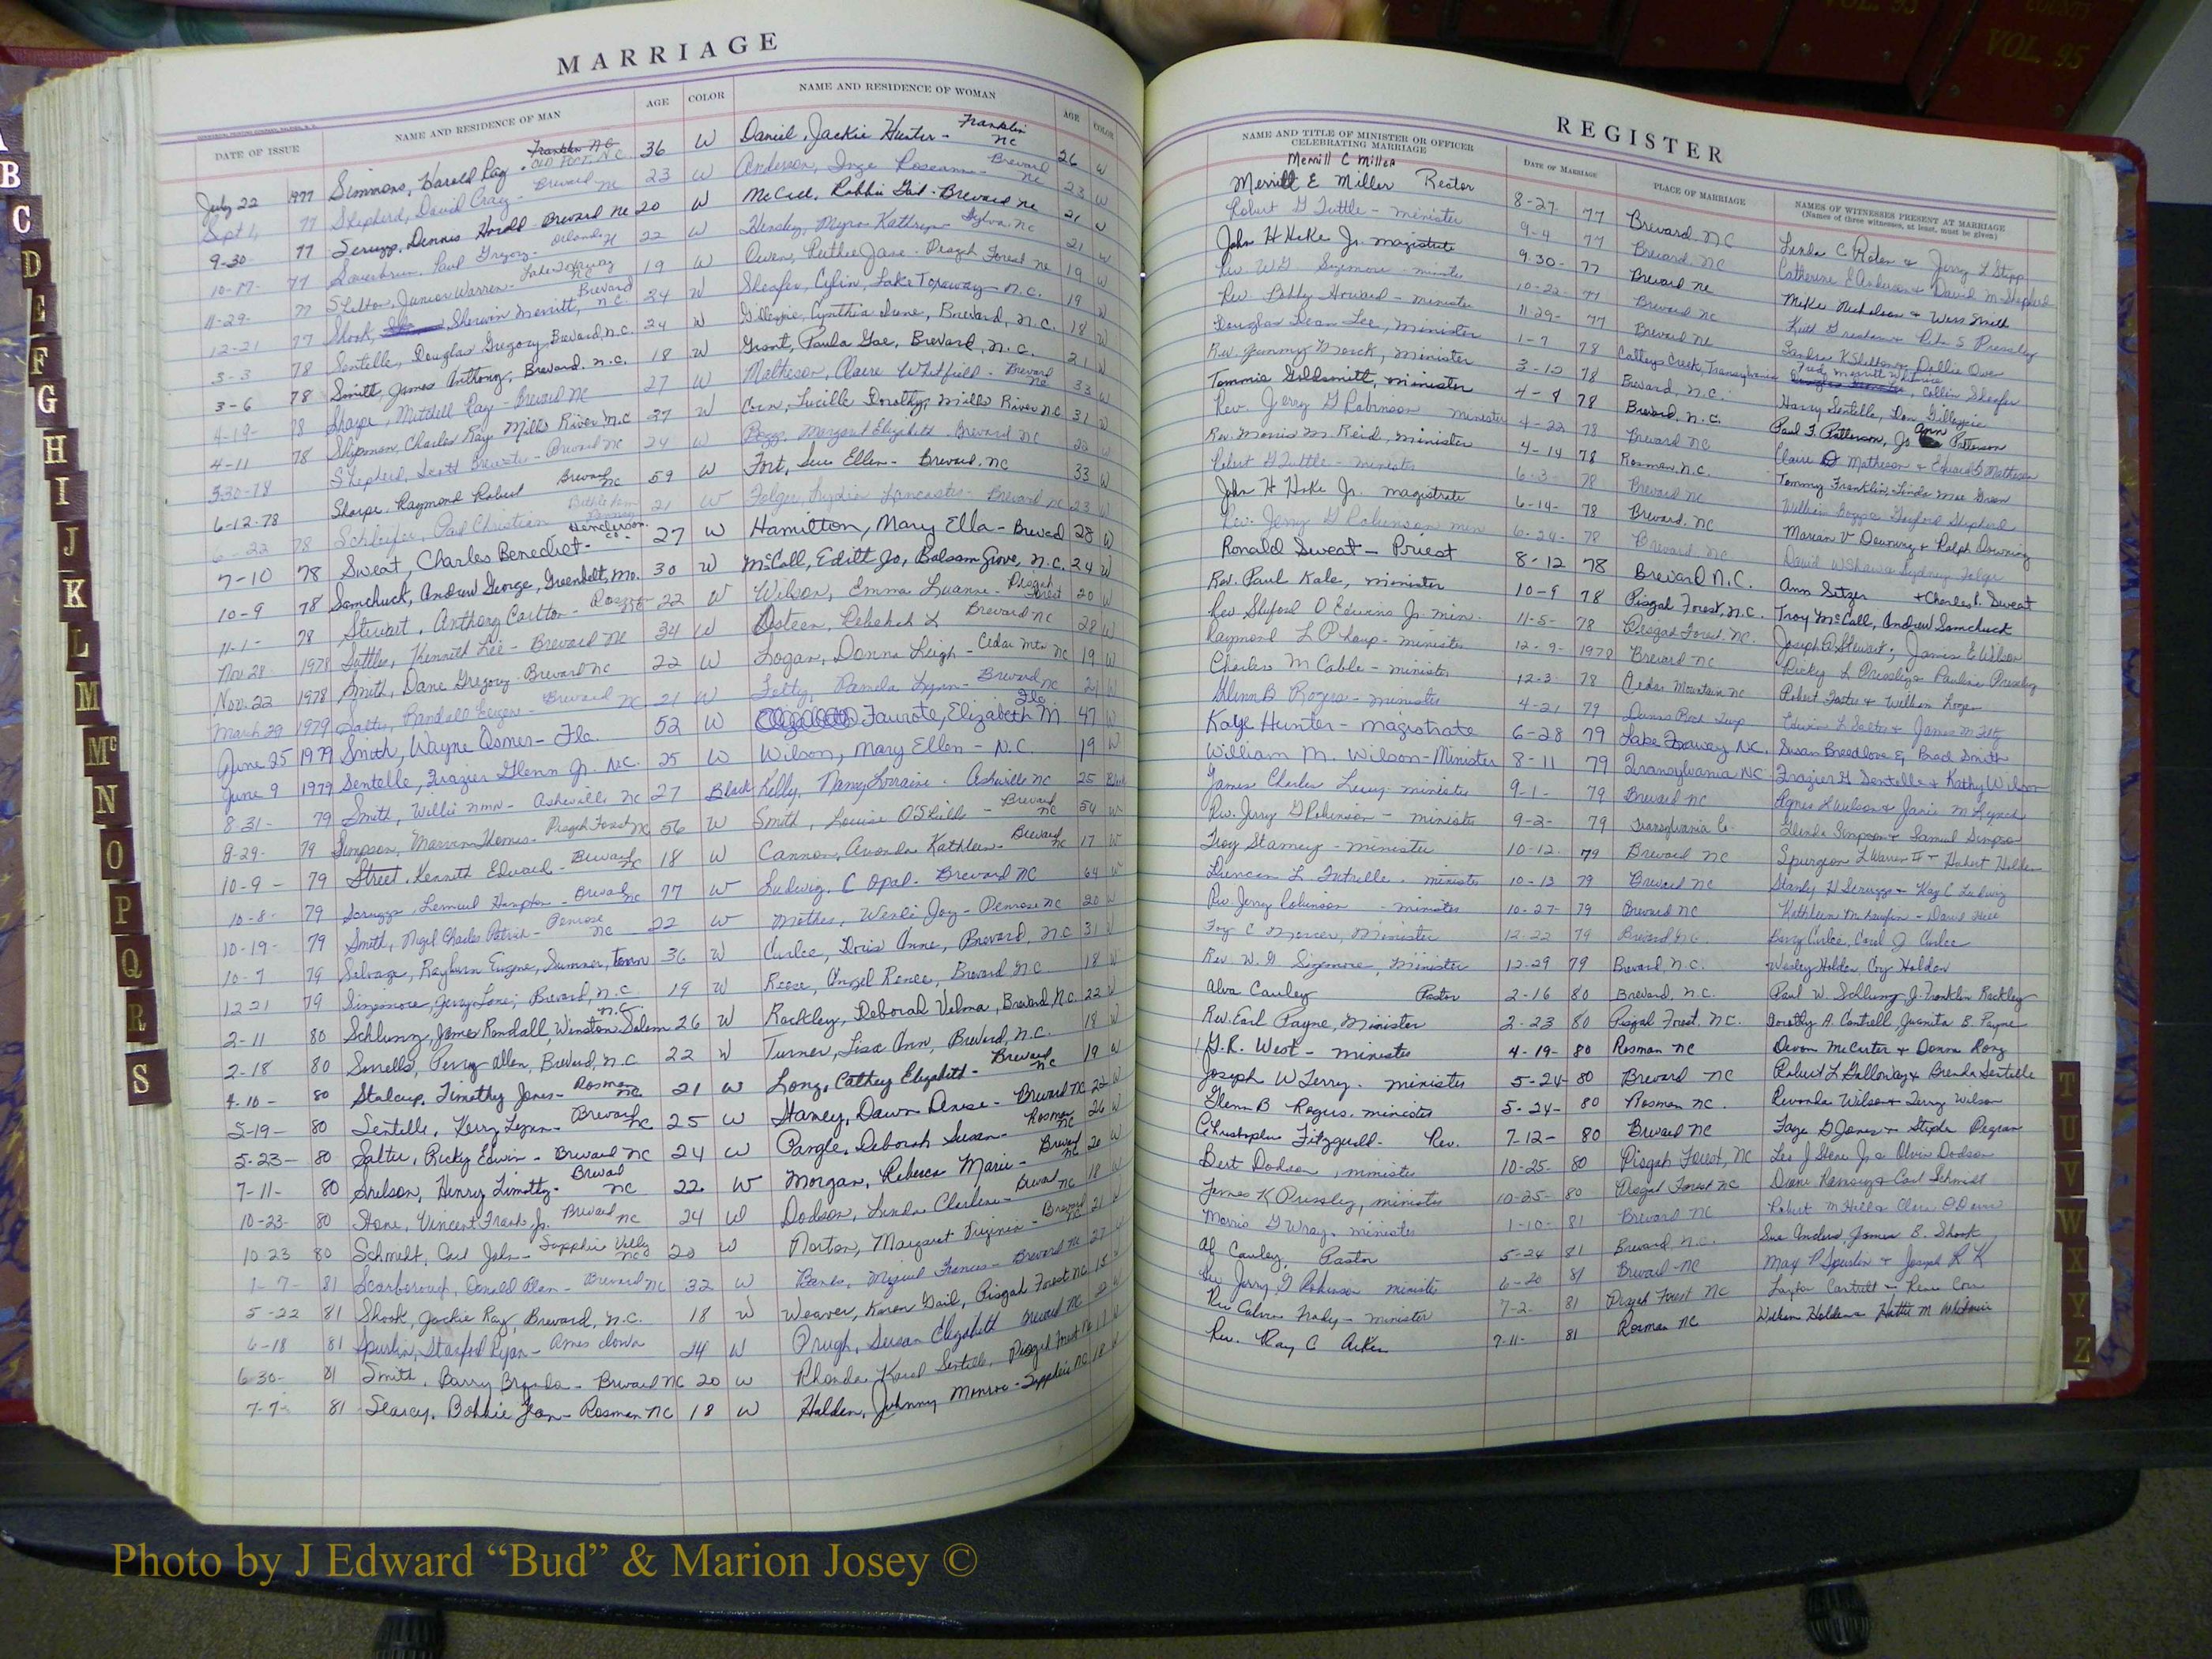 MARRIAGE
DATE OF ISSUE NAME AND RESIDENCE OF MAN AGE COLOR NAME AND RESIDENCE OF WOMAN AGE COLOR
July 22 1977 Simmons, Harold Ray - Franklin NC OLD FORT, N.C. 36 W Daniel, Jackie Hunter - Franklin NC 26 W
Sept 1, 77 Shepherd, David Craig - Brevard NC 23 W Anderson, Inge Roseanne - Brevard NC 23 W
9-30 77 Scruggs, Dennis Harold - Brevard NC 20 W McCall, Robbie Gail - Brevard NC 21 W
10-17- 77 Paul Gregory - Orlando 22 W Hensley, Myra Kathryn - Sylva, NC 21 W
11-29- 77 Shelton, Junior Warren - Lake Toxaway NC 19 W Owen, Jane - Pisgah Forest NC 19 W
12-21 77 Shook, Sherwin Merritt, Brevard N.C. 24 W Sheafer, Lake Toxaway - N.C. 19 W
3-3 78 Sentelle, Douglas Gregory, Brevard, N.C. 24 W Gillespie, Cynthia Dune, Brevard, N.C. 18 W
3-6 78 Smith, James Anthony, Brevard. N.C. 18 W Grant, Paula Gae, Brevard, N.C. 21 W
4-19- 78 Sharpe, Mitchell Ray - Brevard NC 27 W Matheson, Claire Whitfield - Brevard NC 33 W
4-11 78 Shipman, Charles Ray, Mills River N.C 37 W Corn, Lucille Dorothy, Mills River N.C 31 W
5-30-78 Shepherd, Scott Brewster - Brevard NC 24 W Boggs, Margaret Elizabeth - Brevard NC 22 W
6-12-78 Sharpe, Raymond Robert Brevard NC 59 W Fort, Sue Ellen - Brevard, NC 33 W
6-22 78 Paul Christian Bethlehem 21 W Folger, Lydia Lancaster - Brevard NC 23 W
7-10 78 Sweat, Charles Benedict - Henderson Co. 27 W Hamilton, Mary Ella - Brevard 28 W
10-9 78 Samchuck, Andrew George, Greenbelt, Md. 30 W McCall, Edith Jo, Balsam Grove, N.C. 24 W
11-1- 78 Stewart, Anthony Carlton - Rosman NC 22 W Wilson, Emma Luanne - Pisgah Forest 20 W
Nov 28 1978 Suttles, Kenneth Lee - Brevard NC 34 W Osteen, Rebekah L Brevard NC 28 W
Nov. 22 1978 Smith, Dane Gregory - Brevard NC 22 W Logan, Donna Leigh - Cedar Mtn NC 19 W
March 29 1979 Salter, Randall Eugene - Brevard NC 21 W Pamela Lynn - Brevard NC 21 W
June 25 1979 Smith, Wayne Osmer - Fla. 52 W Faurote, Elizabeth M Fla 47 W
June 9 1979 Sentelle, Frazier Glenn Jr. N.C. 25 W Wilson, Mary Ellen - N.C. 19 W
8-31- 79 Smith, Willie nmn - Asheville NC 27 Black Kelly, Nancy Lorraine - Asheville NC 25 Black
8-29- 79 Simpson, Marvin Thomas - Pisgah Forest NC 56 W Smith, Louise - Brevard NC 54 W
10-9 - 79 Street, Kenneth Edward - Brevard NC 18 W Cannon, Avonda Kathleen - Brevard NC 17 W
10-8- 79 Scruggs, Lemuel Hampton - Brevard NC 77 W Ludwig, C Opal - Brevard NC 64 W
10-19- 79 Smith, Nigel Charles Patrick - Penrose NC 22 W Mathes, Wendi Joy - Penrose NC 20 W
10-7 79 Selvage, Rayburn Eugene, Sumner, Tenn 36 W Curlee, Doris Anne, Brevard, N.C 31 W
12-21 79 Singemore, Jerry Lane, Brevard, N.C. 19 W Reese, Angel Renee, Brevard N.C. 18 W
2-11 80 Schlung, James Randall, Winston Salem N.C. 26 W Rackley, Deborah Velma, Brevard, N.C. 22 W
2-18 80 Sorrells, Perry Allen, Brevard, N.C 22 W Turner, Lisa Ann, Brevard, N.C. 18 W
4-10 - 80 Stalcup, Timothy James - Rosman NC 21 W Long, Cathey Elizabeth - Brevard NC 19 W
5-19 - 80 Sentelle, Kerry Lynn - Brevard NC 25 W Stamey, Dawn - Brevard NC 22 W
5-23 - 80 Salter, Ricky Edwin - Brevard NC 24 W Pangle, Deborah Susan - Rosman NC 26 W
7-11- 80 Henry Timothy - Brevard NC 22 W Morgan, Rebecca Marie - Brevard NC 20 W
10-23- 80 Stone, Vincent Frank Jr. Brevard NC 24 W Dodson, Linda Charlene - Brevard NC 18 W
10-23 80 Schmidt, Carl John - Sapphire Valley NC 20 W Norton, Margaret Virginia - Brevard NC 21 W
1-7- 81 Scarborough, Donald Alan - Brevard NC 32 W Banks, Frances - Brevard NC 27 W
5-22 81 Shook, Jackie Ray, Brevard, N.C. 18 W Weaver, Karen Gail, Pisgah Forest NC 18 W
6-18 81 Spurlin, Stanford Ryan - 24 W Prugh, Susan Elizabeth Brevard NC W
6-30- 81 Smith, Barry - Brevard NC 20 W Rhonda Karol Sentelle, Pisgah Forest NC W
7-7- 81 Searcy, Bobbie Jean - Rosman NC 18 W Holden, Johnny Monroe - Sapphire NC 18 W
REGISTER
NAME AND TITLE OF MINISTER OR OFFICER CELEBRATING MARRIAGE DATE OF MARRIAGE PLACE OF MARRIAGE NAMES OF WITNESSES PRESENT AT MARRIAGE
(Names of three witnesses, at least, must be given)
Merrill C Miller
Merrill E Miller Rector 8-27- 77 Brevard, NC Linda C & Jerry L Stipp
Robert G Tuttle - minister 9-4 77 Brevard, NC Catherine E Anderson & David M Shepherd
John H Hoke Jr. magistrate 9-30- 77 Brevard NC Mike Nicholson & Wess Smith
Rev. W.G. Sizemore - minister 10-22- 77 Brevard NC
Rev Bobby Howard - minister 11-29- 77 Brevard NC Sandra K Shelton & Dollie Owen
Douglas Dean Lee, Minister 1-7 78 Catheys Creek, Transylvania Collin Sheafer
Rev. Jimmy, Minister 3-12 78 Brevard, N.C. Harry Sentelle, Don Gillespie
Tommie Goldsmith, minister 4-8 78 Brevard, N.C. Paul F. Patterson, Jo Ann Patterson
Rev. Jerry G Robinson minister 4-22 78 Brevard NC Claire Matheson & Matheson
Rev. Morris M. Reid, Minister 4-14 78 Rosman, N.C. Tommy Franklin, Linda Mae Green
Robert G Tuttle - minister 6-3- 78 Brevard NC William Boggs
John H Hoke Jr. magistrate 6-14- 78 Brevard, NC Marian V Downing & Ralph Downing
Rev. Jerry G Robinson min 6-24- 78 Brevard, NC Sydney Folger
Ronald Sweat - Priest 8-12 78 Brevard N.C. Ann Setzer + Charles P. Sweat
Rev. Paul Kale, minister 10-9 78 Pisgah Forest, N.C. Troy McCall, Andrew Samchuck
Rev Shuford O Edwins Jr. min. 11-5- 78 Pisgah Forest, NC. Joseph A Stewart, James E Wilson
Raymond L - minister 12-9- 1978 Brevard NC Ricky L Pressley & Pauline Pressley
Charles M Cable - minister 12-3 78 Cedar Mountain NC Robert Foster & William Looper
Glenn B Rogers - minister 4-21 79 Dunns Rock Twp
Kaye Hunter - magistrate 6-28 79 Lake Toxaway NC. Susan Breedlove & Brad Smith
William M. Wilson - Minister 8-11 79 Transylvania NC Frazier G Sentelle & Kathy Wilson
James Charles minister 9-1- 79 Brevard NC Agnes L Wilson & Janie M Lynch
Rev. Jerry G Robinson - minister 9-2- 79 Transylvania Co. Glenda Simpson & Samuel Simpson
Troy Stamey - minister 10-12- 79 Brevard NC Spurgeon L Warren II & Hubert Holden
Duncan L Futrelle - minister 10-13 79 Brevard NC Stanley H Scruggs & Kay C Ludwig
Rev Jerry Robinson - minister 10-27- 79 Brevard NC Kathleen McLaughlin - David
Foy C Mercer, Minister 12-22 79 Brevard N.C. Barry Curlee, Carol J Curlee
Rev. W. G Sizemore, Minister 12-29 79 Brevard, N.C. Wesley Holden, Coy Holden
Alva Cauley Pastor 2-16 80 Brevard, N.C. Paul W. Schlung, J. Franklin Rackley
Rev. Earl Payne, Minister 2-23 80 Pisgah Forest, N.C. Dorothy A. Cantrell, Juanita B. Payne
G.R. West - minister 4-19- 80 Rosman NC Devon McCarter & Donna Long
Joseph W Terry - minister 5-24- 80 Brevard NC Robert L Galloway & Brenda Sentelle
Glenn B Rogers. minister 5-24- 80 Rosman NC. Revonda Wilson & Terry Wilson
Christopher Fitzgerald - Rev. 7-12- 80 Brevard NC Faye G Jones & Pegram
Bert Dodson, minister 10-25- 80 Pisgah Forest, NC Leo J Stone Jr & Alvin Dodson
James K Pressley, minister 10-25- 80 Pisgah Forest NC Diane Ramsey & Carl Schmidt
Morris G Wray, minister 1-10- 81 Brevard NC
Al Cauley, Pastor 5-24 81 Brevard, N.C. Sue Anders, James B. Shook
Rev Jerry G Robinson minister 6-20 81 Brevard - NC Max P Spurlin & Joseph R K
Rev Calvin - minister 7-2 81 Pisgah Forest NC Layton Cantrell & Rene Corn
Rev. Ray C Aiken 7-11- 81 Rosman NC Hattie M
B
C
D
E
F
G
H
I
J
K
L
M
Mc
N
O
P
Q
R
S
T
U
V
W
X
Y
Z
VOL. 95
COUNTY
VOL. 95
Photo by J Edward “Bud” & Marion Josey ©